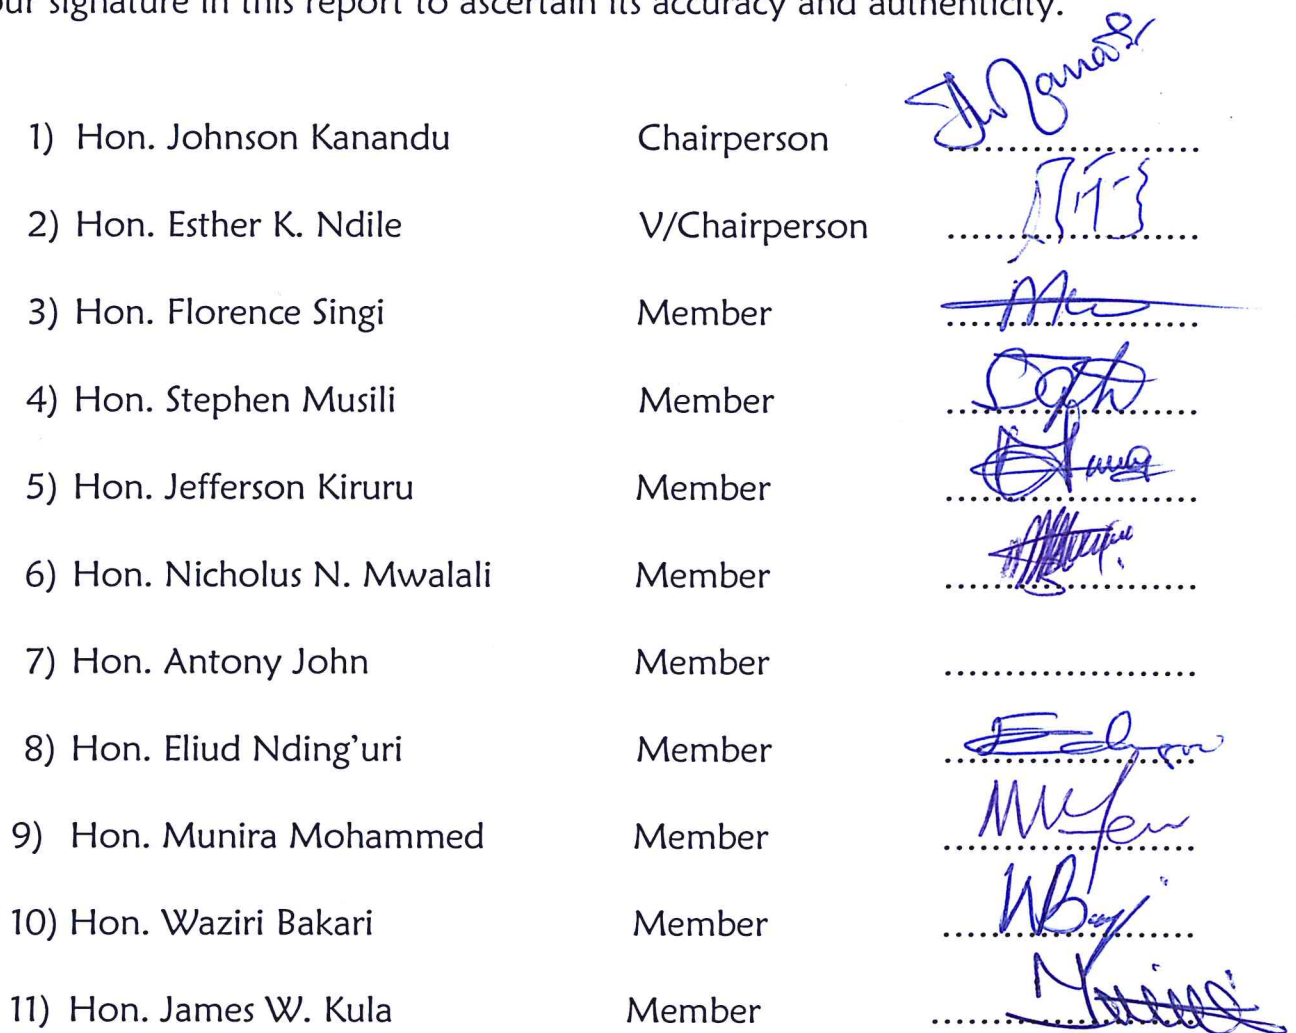 our signature in this report to ascertain its accuracy and authenticity.
1) Hon. Johnson Kanandu Chairperson ....................
2) Hon. Esther K. Ndile V/Chairperson ....................
3) Hon. Florence Singi Member ....................
4) Hon. Stephen Musili Member ....................
5) Hon. Jefferson Kiruru Member ....................
6) Hon. Nicholus N. Mwalali Member ....................
7) Hon. Antony John Member ....................
8) Hon. Eliud Nding'uri Member ....................
9) Hon. Munira Mohammed Member ....................
10) Hon. Waziri Bakari Member ....................
11) Hon. James W. Kula Member ....................